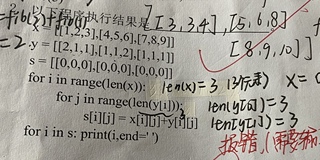 以下程序执行结果是 [3,3,4],[5,6,8]
[8,9,10]]
x = [[1,2,3],[4,5,6],[7,8,9]]
=2
y = [[2,1,1],[1,1,2],[1,1,1]]
s = [[0,0,0],[0,0,0],[0,0,0]]
for i in range(len(x)): len(x)=3
for j in range(len(y[i])): len(y[0])=3
s[i][j] = x[i][j]+y[i][j] len(y[i])=3
for i in s: print(i,end=' ')
报错,